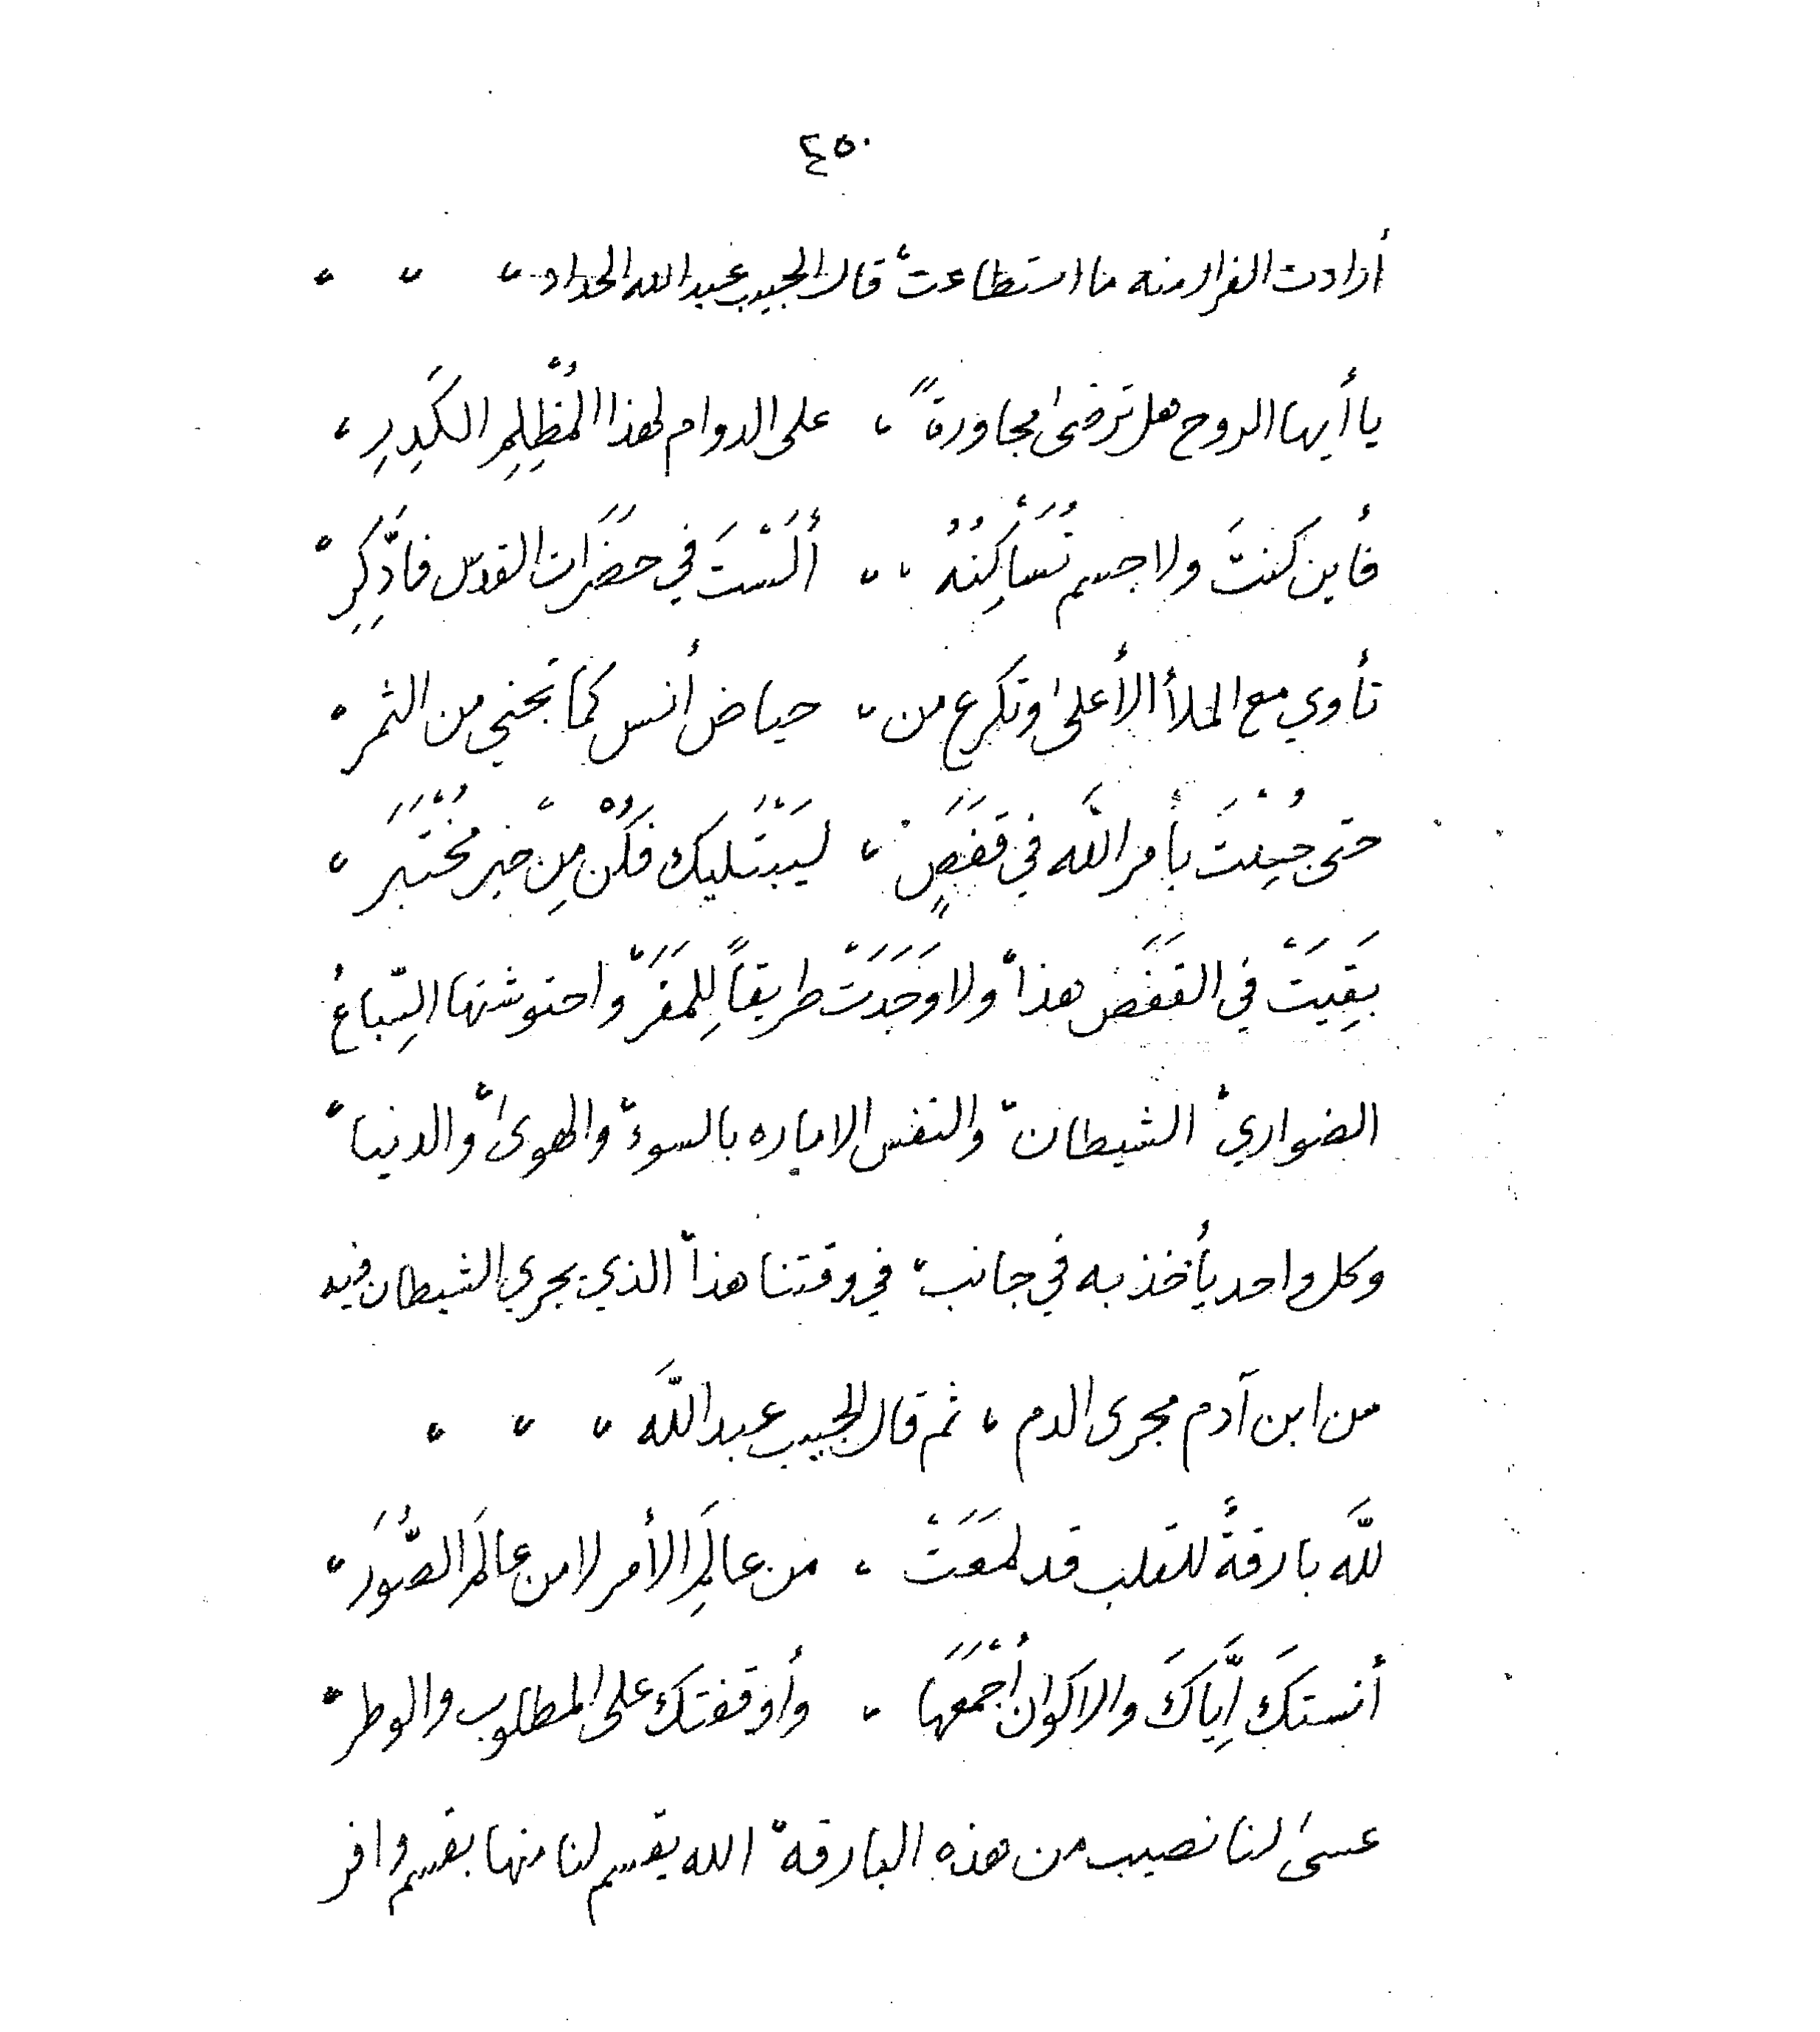 ٤٥٠
أرادت الفرار منه ما استطاعت ، قال الحبيب عبد الله الحداد ، ، ،
يا أيها الروح هل ترضىٰ مجاورةً ، على الدوام لهذا المُظْلِمِ الكَدِرِ ،
فأين كنتَ ولا جسم تُسَاكِنُهُ ، ، ألَسْتَ في حضَرَات القدس فادَّكِرِ ،
تأوي مع الملأ الأعلىٰ وتكرع من ، حياض أنس كما تجني من الثمر ،
حتى جُعِلْتَ بأمر اللَّه في قفَصٍ ، ليَبْتَليك فكُنْ مِن خير مُخْتَبَر ،
بَقِيَتْ في القفَص هذا ، ولا وَجَدَتْ طريقاً لِلمَفَرّ ، واحتوشتها السِّباعُ
الضواري ، الشيطان ، والنفس الاماره بالسوء ، والهوىٰ ، والدنيا ،
وكل واحد يأخذ به في جانب ، في وقتنا هذا ، الذي يجري الشيطان فيه
من ابن آدم مجرى الدم ، ثم قال الحبيب عبد اللَّه ، ، ،
للَّه بارقةٌ للقلب قد لمَعَتْ ، من عالَمِ الأمر لا من عالَم الصُّوَر ،
أنستكَ إيَّاكَ والاكوان أجْمَعَها ، وأوقفتكَ على المطلوب والوطر ،
عسىٰ لنا نصيب من هذه البارقة ، الله يقسم لنا منها بقسم وافر